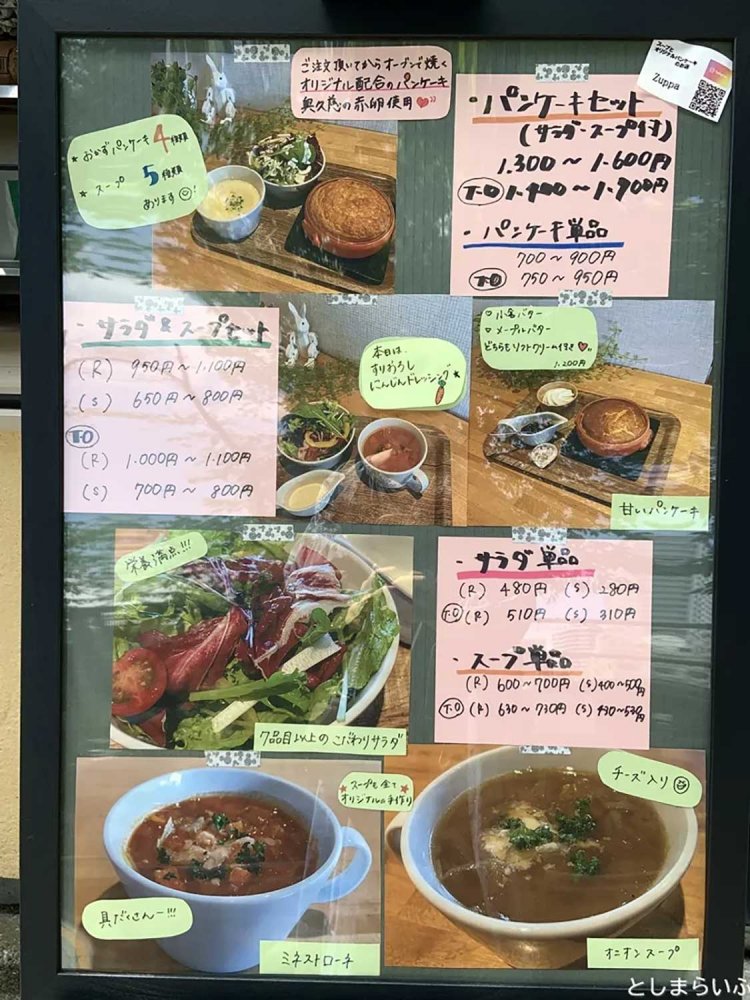 ご注文頂いてからオーブンで焼く
オリジナル配合のパンケーキ
奥久慈の赤卵使用
スープと
オリジナルパンケーキ
のお店
Zuppa
★おかずパンケーキ4種類
★スープ 5種類
あります
・パンケーキセット
(サラダ・スープ付)
1.300〜1.600円
T.O 1.400〜1.700円
・パンケーキ単品
700〜900円
T.O 750〜950円
・サラダ&スープセット
(R) 950円〜1.100円
(S) 650円〜800円
T.O
(R) 1.000円〜1.100円
(S) 700円〜800円
本日は、
すりおろし
にんじんドレッシング★
♡小倉バター
♡メープルバター
どちらもソフトクリーム付き
1.200円
甘いパンケーキ
栄養満点!!!
7品目以上のこだわりサラダ
・サラダ単品
(R) 480円 (S) 280円
T.O (R) 510円 (S) 310円
・スープ単品
(R) 600〜700円 (S) 400〜500円
T.O (R) 630〜730円 (S) 430〜530円
スープも全て
オリジナルの手作り
チーズ入り
具だくさんー!!!
ミネストローネ
オニオンスープ
としまらいふ